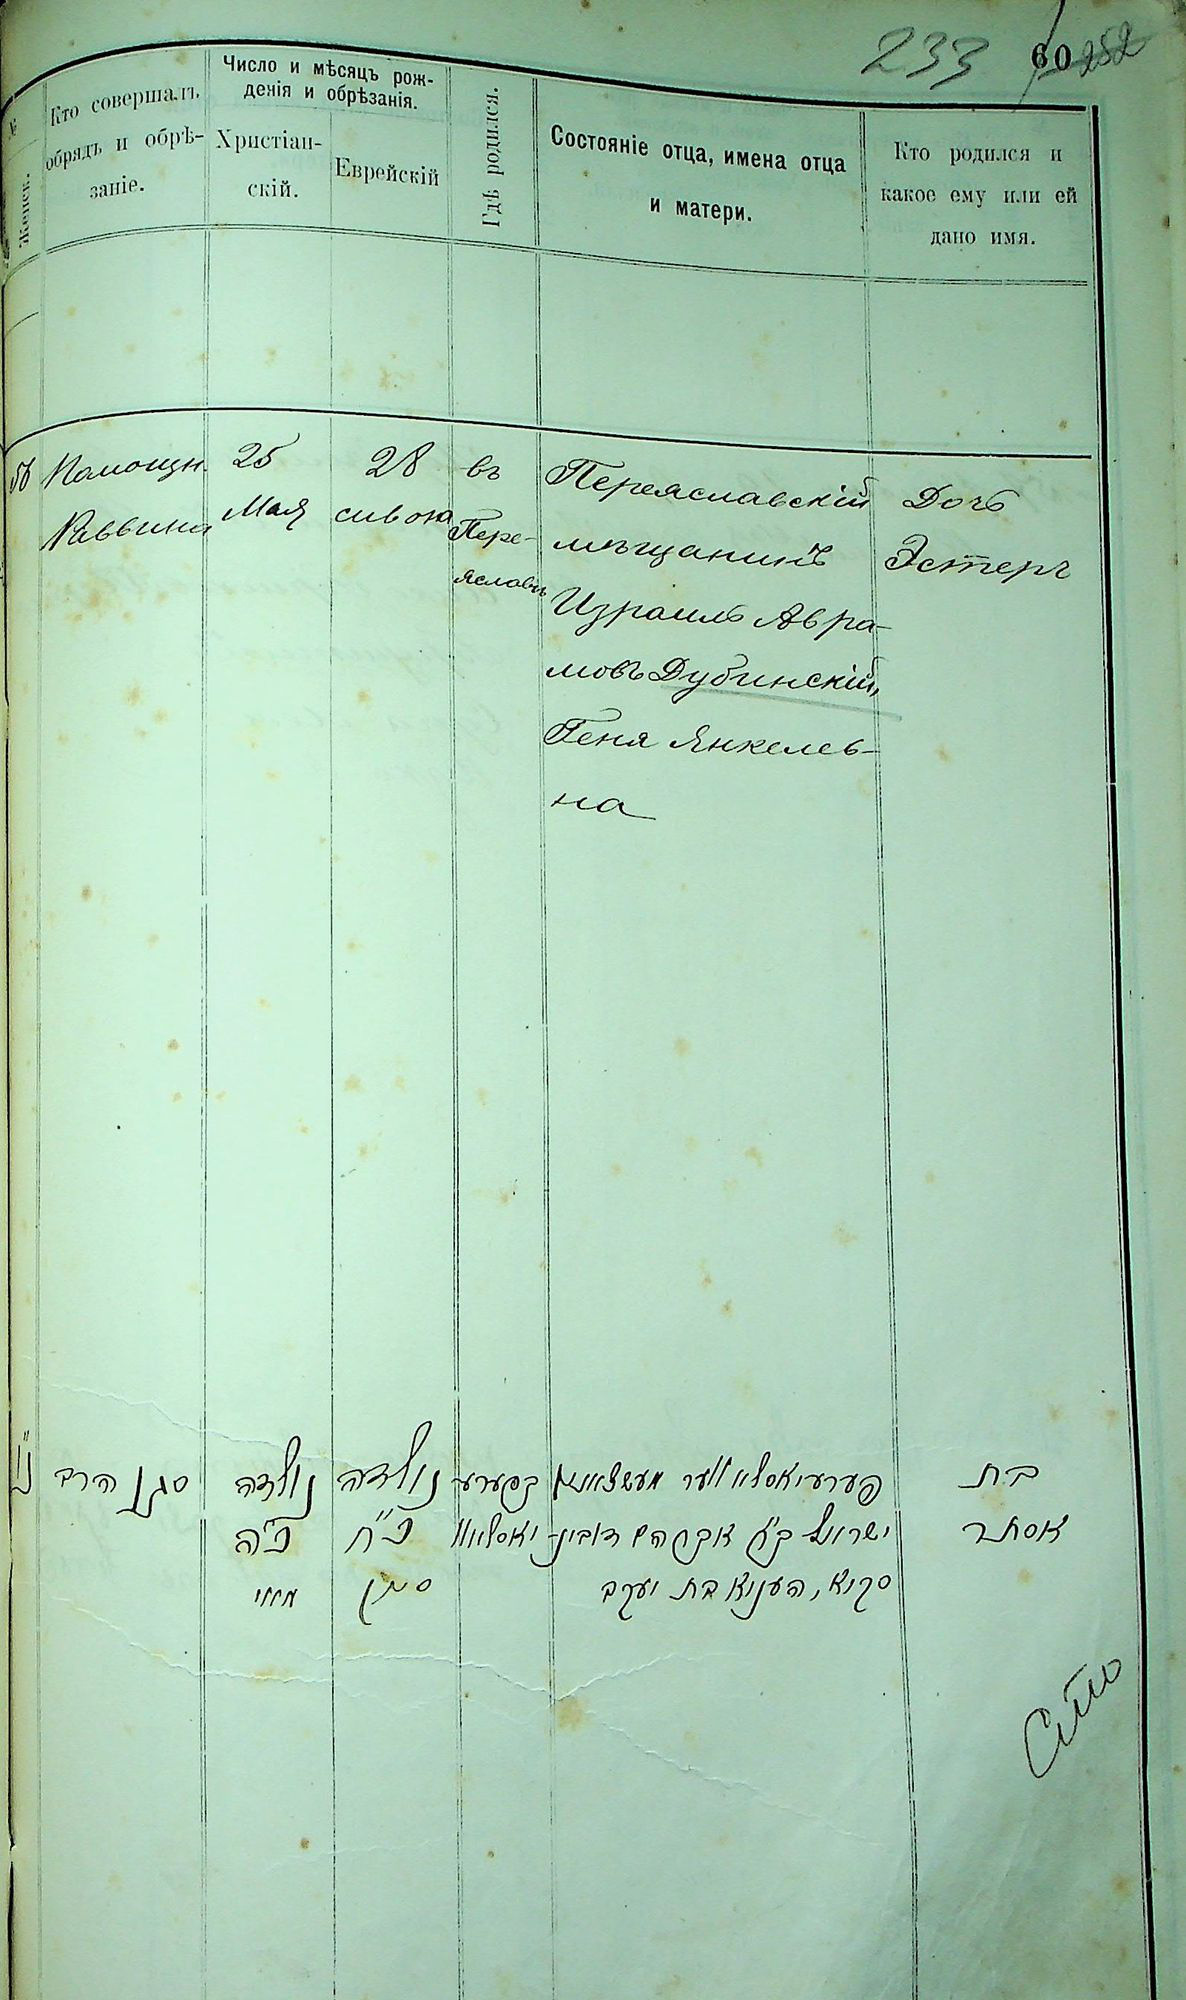 233 60 252
№
Женск.
Кто совершалъ
обрядъ и обрѣ-
заніе.
Число и мѣсяцъ рож-
денія и обрѣзанія.
Христіан-
скій.
Еврейскій
Гдѣ родился.
Состояніе отца, имена отца
и матери.
Кто родился и
какое ему или ей
дано имя.
Помощн.
Раввина
25
Мая
28
сивона
въ
Пере-
яславѣ
Переяславскій
мѣщанинъ
Израиль Авра-
мовъ Дубинскій,
Геня Янкелев-
на
Дочь
Эстеръ
סגן הרב
נולדה
כ"ה
מאי
נולדה
כ"ח
סיון
בפערע
יאסלאוו
פערעיאסלאווער מעשצאנין
ישראל ב"ר אברהם דובינ-
סקיא, העניא בת יעקב
בת
אסתר
Сто